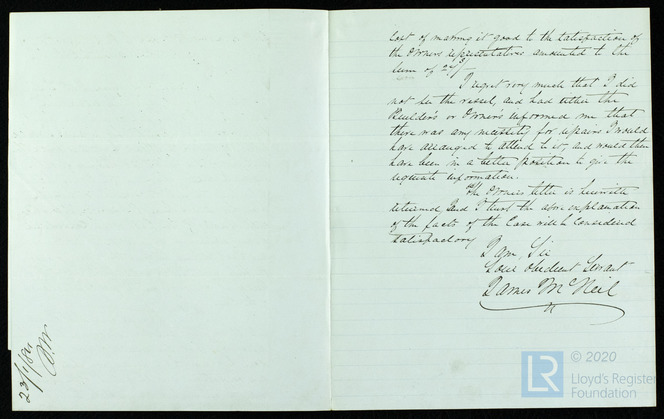 Cost of making it good to the satisfaction of
the Owners representatives amounted to the
sum of
I regret very much that I did
not see the vessel, and had either the
Builders or Owners informed me that
there was any necessity for repairs I would
have arranged to attend to it, and would then
have been in a better position to give the
requisite information.
The Owners letter is herewith
returned, and I trust the above explanation
of the facts of the Case will be Considered
satisfactory
I am, Sir
Your Obedient Servant
James McNeil
23/1/84
LR
© 2020
Lloyd's Register
Foundation